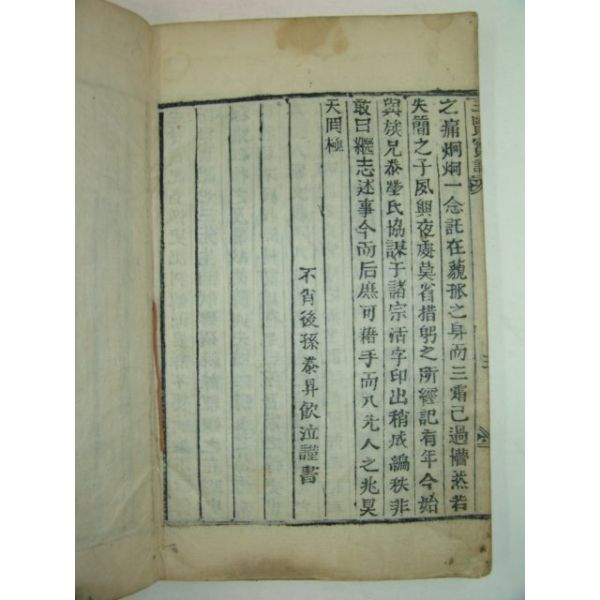 三賢實記
之痛炯炯一念託在藐孤之身而三霜已過懵然若
失簡之予夙興夜處莫省措躬之所經記有年今始
與族兄泰瑩氏協謀于諸宗活字印出稍成編秩非
敢曰繼志述事今而后庶可藉手而入先人之兆昊
天罔極
不肖後孫泰昇飮泣謹書